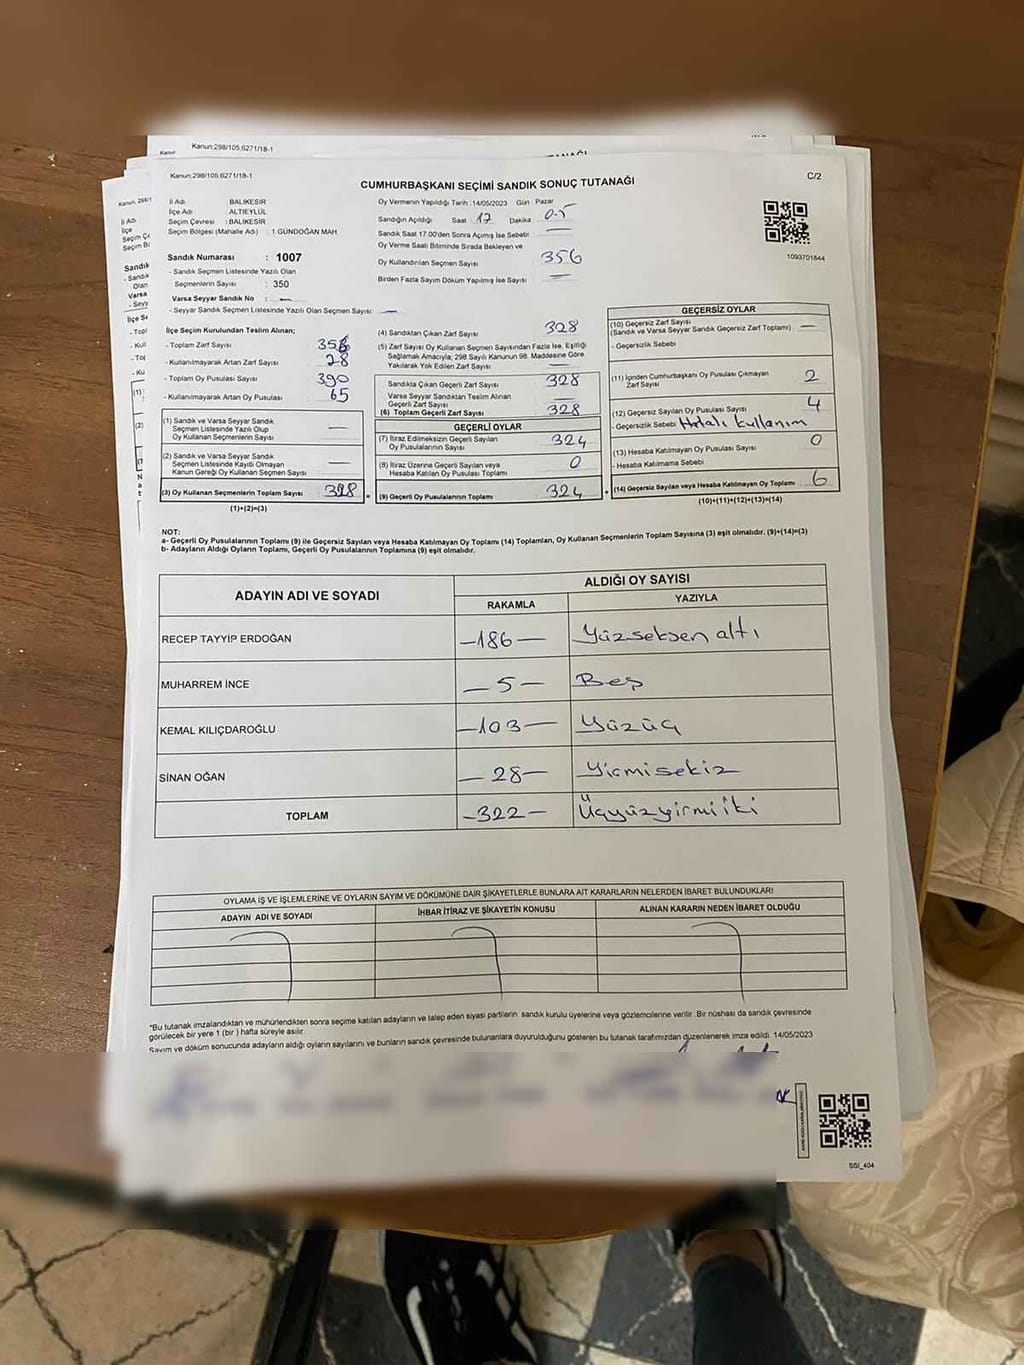 Kanun:298/105,6271/18-1
Kanun:298/105,6271/18-1
C/2
CUMHURBAŞKANI SEÇİMİ SANDIK SONUÇ TUTANAĞI
İl Adı : BALIKESİR
İlçe Adı : ALTIEYLÜL
Seçim Çevresi : BALIKESİR
Seçim Bölgesi (Mahalle Adı) : 1.GÜNDOĞAN MAH
Oy Vermenin Yapıldığı Tarih :14/05/2023 Gün : Pazar
Sandığın Açıldığı Saat 17 Dakika 05
Sandık Saat 17.00'den Sonra Açımış İse Sebebi : —
Oy Verme Saati Bitiminde Sırada Bekleyen ve
Oy Kullandırılan Seçmen Sayısı 356
Birden Fazla Sayım Döküm Yapılmış İse Sayısı : —
1093701844
Sandık Numarası : 1007
- Sandık Seçmen Listesinde Yazılı Olan
Seçmenlerin Sayısı : 350
Varsa Seyyar Sandık No : —
- Seyyar Sandık Seçmen Listesinde Yazılı Olan Seçmen Sayısı: —
İlçe Seçim Kurulundan Teslim Alınan;
- Toplam Zarf Sayısı 356
- Kullanılmayarak Artan Zarf Sayısı 28
- Toplam Oy Pusulası Sayısı 390
- Kullanılmayarak Artan Oy Pusulası 65
(1) Sandık ve Varsa Seyyar Sandık
Seçmen Listesinde Yazılı Olup
Oy Kullanan Seçmenlerin Sayısı —
(2) Sandık ve Varsa Seyyar Sandık
Seçmen Listesinde Kayıtlı Olmayan
Kanun Gereği Oy Kullanan Seçmen Sayısı —
(3) Oy Kullanan Seçmenlerin Toplam Sayısı 328
(1)+(2)=(3)
(4) Sandıktan Çıkan Zarf Sayısı 328
(5) Zarf Sayısı Oy Kullanan Seçmen Sayısından Fazla İse, Eşitliği
Sağlamak Amacıyla; 298 Sayılı Kanunun 98. Maddesine Göre
Yakılarak Yok Edilen Zarf Sayısı —
Sandıkta Çıkan Geçerli Zarf Sayısı 328
Varsa Seyyar Sandıktan Teslim Alınan
Geçerli Zarf Sayısı —
(6) Toplam Geçerli Zarf Sayısı 328
GEÇERLİ OYLAR
(7) İtiraz Edilmeksizin Geçerli Sayılan
Oy Pusulasının Sayısı 324
(8) İtiraz Üzerine Geçerli Sayılan veya
Hesaba Katılan Oy Pusulası Toplamı 0
(9) Geçerli Oy Pusulalarının Toplamı 324
GEÇERSİZ OYLAR
(10) Geçersiz Zarf Sayısı
(Sandık ve Varsa Seyyar Sandık Geçersiz Zarf Toplamı) —
- Geçersizlik Sebebi
(11) İçinden Cumhurbaşkanı Oy Pusulası Çıkmayan
Zarf Sayısı 2
(12) Geçersiz Sayılan Oy Pusulası Sayısı 4
- Geçersizlik Sebebi Hatalı kullanım
(13) Hesaba Katılmayan Oy Pusulası Sayısı 0
- Hesaba Katılmama Sebebi
(14) Geçersiz Sayılan veya Hesaba Katılmayan Oy Toplamı 6
(10)+(11)+(12)+(13)=(14)
NOT:
a- Geçerli Oy Pusulalarının Toplamı (9) ile Geçersiz Sayılan veya Hesaba Katılmayan Oy Toplamı (14) Toplamları, Oy Kullanan Seçmenlerin Toplam Sayısına (3) eşit olmalıdır. (9)+(14)=(3)
b- Adayların Aldığı Oyların Toplamı, Geçerli Oy Pusulalarının Toplamına (9) eşit olmalıdır.
ADAYIN ADI VE SOYADI ALDIĞI OY SAYISI
RAKAMLA YAZIYLA
RECEP TAYYİP ERDOĞAN —186— Yüzseksen altı
MUHARREM İNCE —5— Beş
KEMAL KILIÇDAROĞLU —103— Yüzüç
SİNAN OĞAN —28— Yirmisekiz
TOPLAM —322— Üçyüzyirmiiki
OYLAMA İŞ VE İŞLEMLERİNE VE OYLARIN SAYIM VE DÖKÜMÜNE DAİR ŞİKAYETLERLE BUNLARA AİT KARARLARIN NELERDEN İBARET BULUNDUKLARI
ADAYIN ADI VE SOYADI İHBAR İTİRAZ VE ŞİKAYETİN KONUSU ALINAN KARARIN NEDEN İBARET OLDUĞU
*Bu tutanak imzalandıktan ve mühürlendikten sonra seçime katılan adayların ve talep eden siyasi partilerin sandık kurulu üyelerine veya gözlemcilerine verilir. Bir nüshası da sandık çevresinde
görülecek bir yere 1 (bir) hafta süreyle asılır.
Sayım ve döküm sonucunda adayların aldığı oyların sayılarını ve bunların sandık çevresinde bulunanlara duyurulduğunu gösteren bu tutanak tarafımızdan düzenlenerek imza edildi. 14/05/2023
SSI_404